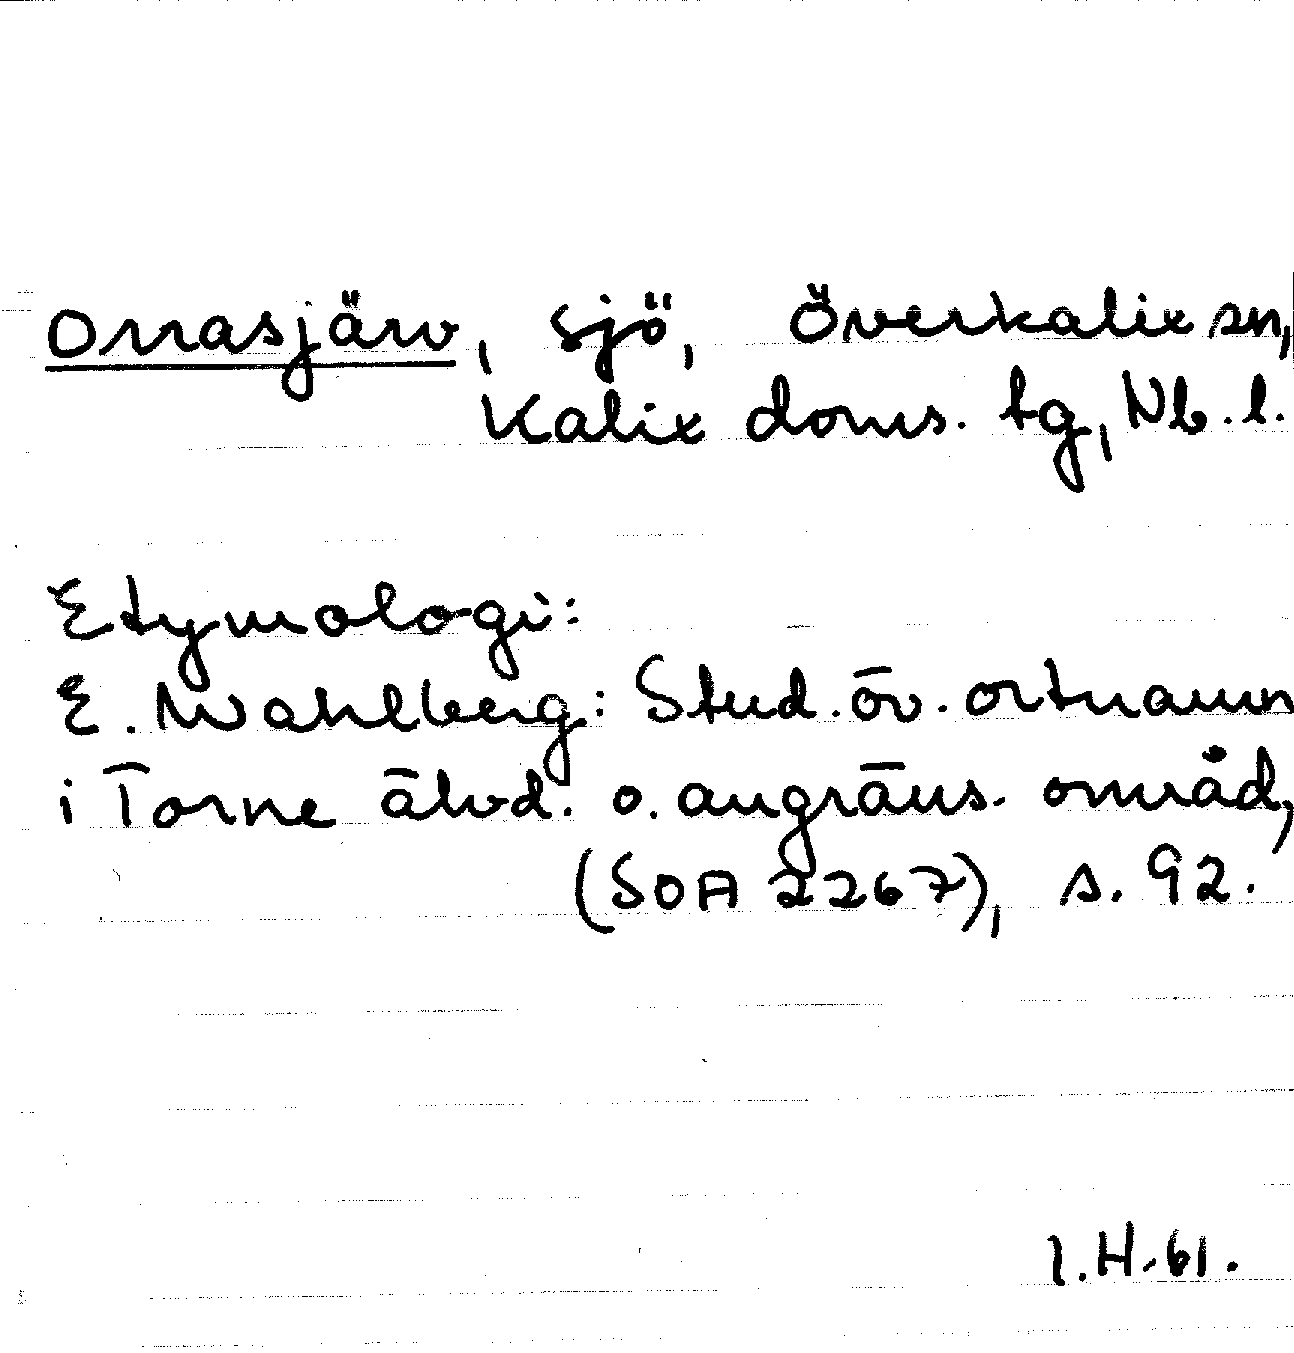 Orrasjärv, sjö, Överkalix sn,
Kalix doms. tg, Nb. l.
Etymologi:
E. Wahlberg: Stud. öv. ortnamn
i Torne älvd. o. angräns. område,
(SOA 2267), s. 92.
I.H. 61.